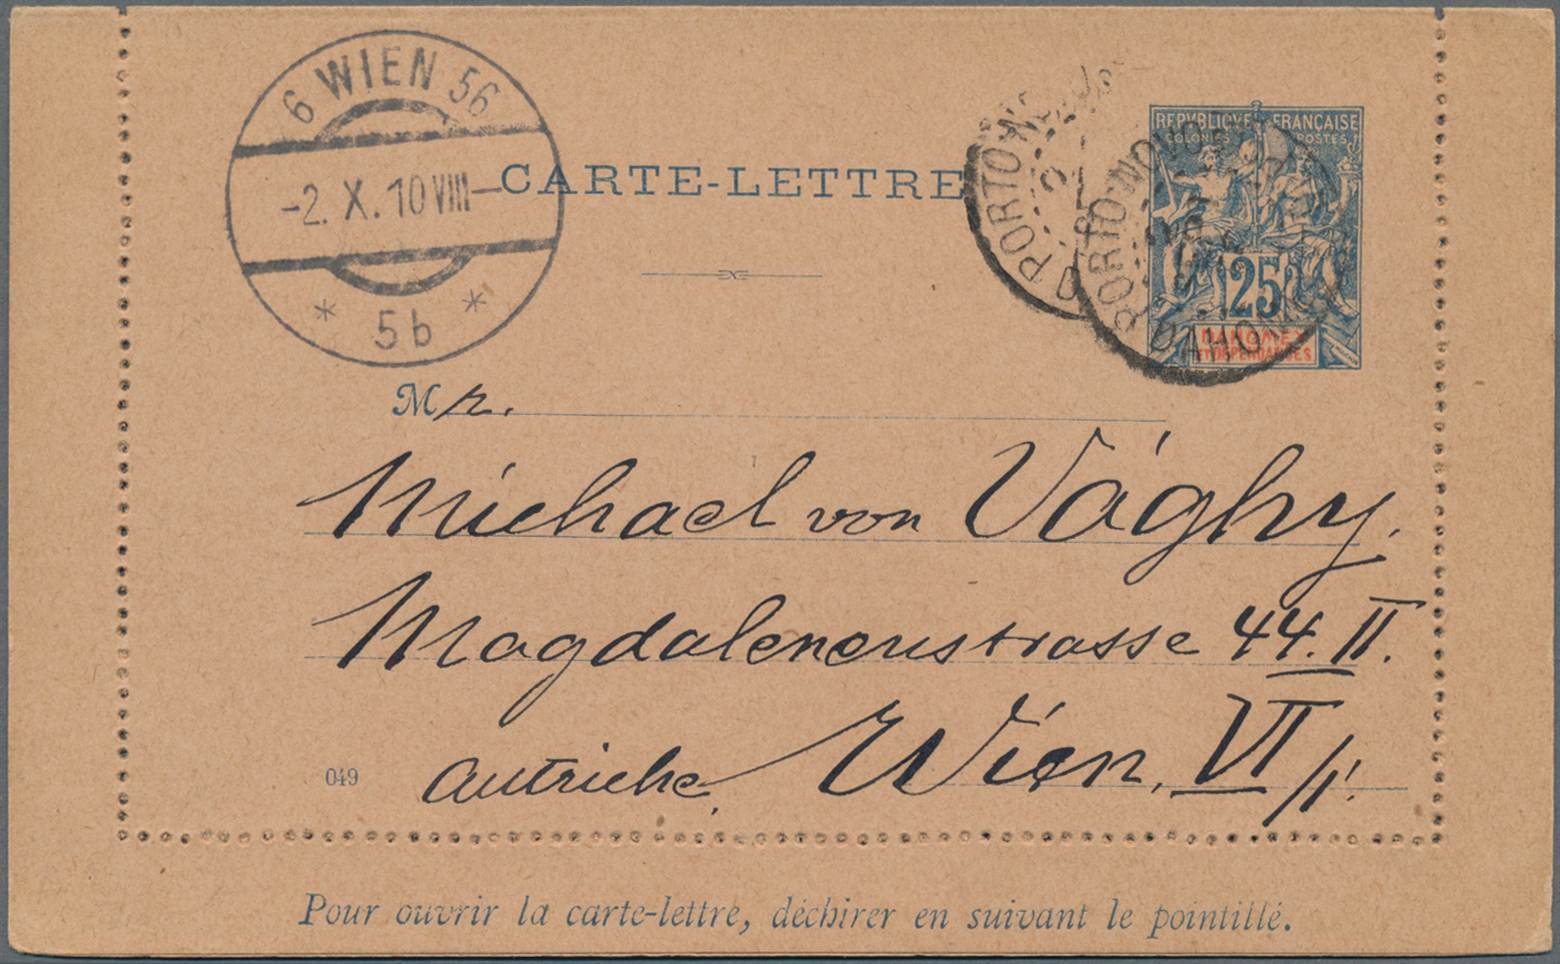 6 WIEN 56
-2. X. 10 VIII-
* 5b *
CARTE-LETTRE
PORTO-NOVO
PORTO-NOVO
DAHOMEY
REPUBLIQUE FRANÇAISE
COLONIES POSTES
25
DAHOMEY
ET DÉPENDANCES
Mr.
Michael von Vághy.
Magdalenenstrasse 44. II.
049
Autriche, Wien, VI/1.
Pour ouvrir la carte-lettre, déchirer en suivant le pointillé.